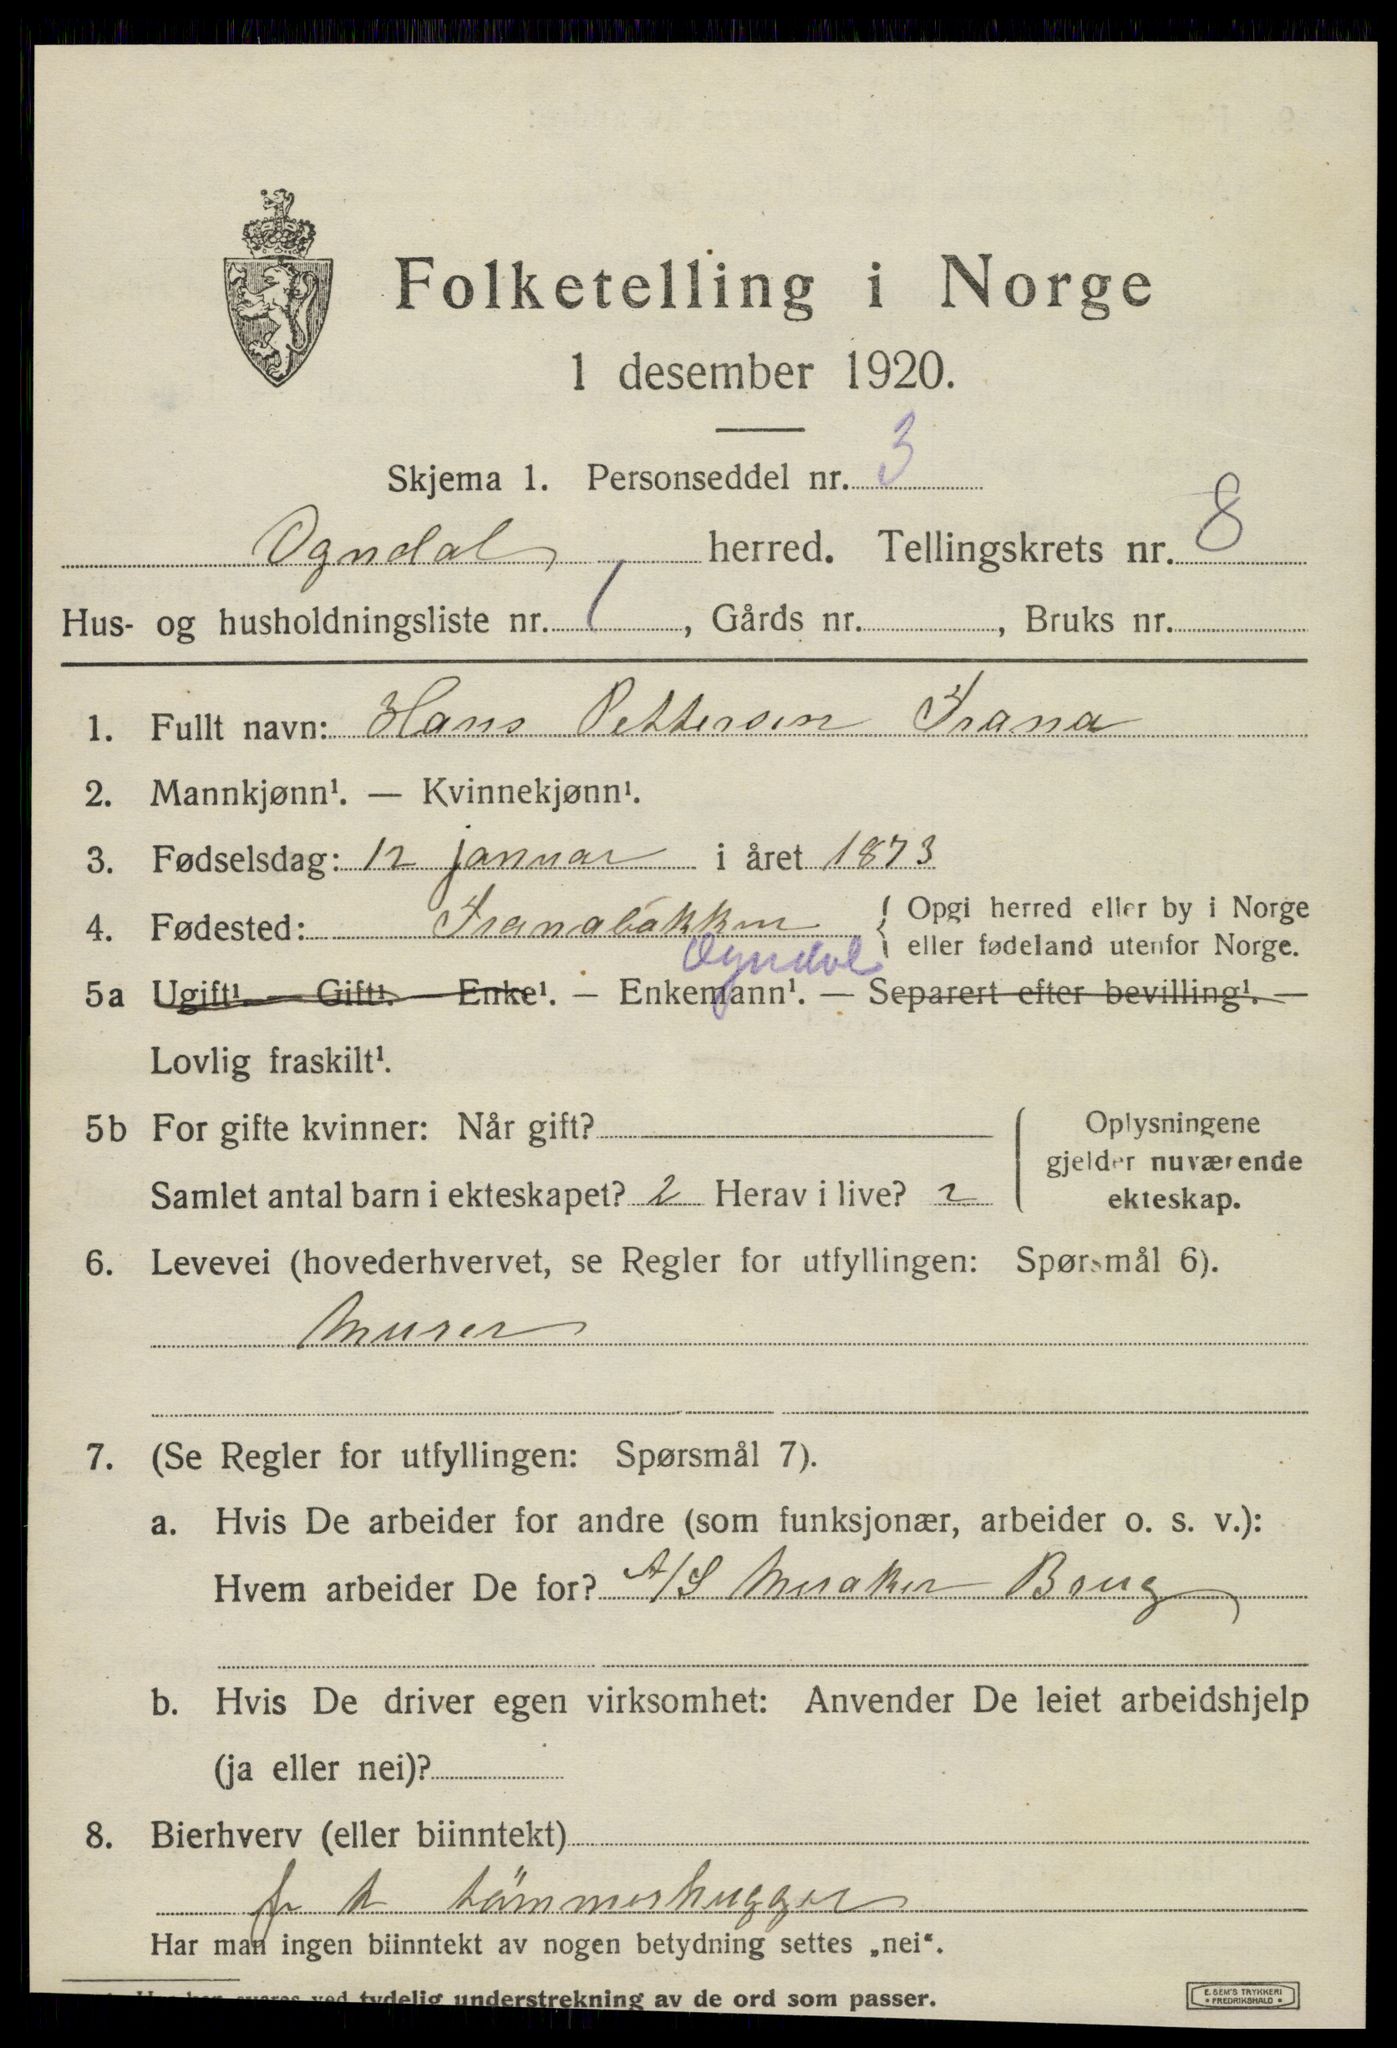 Folketelling i Norge
1 desember 1920.
Skjema 1. Personseddel nr. 3
Ogndal herred. Tellingskrets nr. 8
Hus- og husholdningsliste nr. 1, Gårds nr. , Bruks nr.
1. Fullt navn: Hans Pettersen Frana
2. Mannkjønn¹. — Kvinnekjønn¹.
3. Fødselsdag: 12 januar i året 1873
4. Fødested: Franabakken { Opgi herred eller by i Norge
eller fødeland utenfor Norge.
Ogndal
5a Ugift¹. — Gift¹. — Enke¹. — Enkemann¹. — Separert efter bevilling¹. —
Lovlig fraskilt¹.
5b For gifte kvinner: Når gift? { Oplysningene
gjelder nuværende
Samlet antal barn i ekteskapet? 2 Herav i live? 2 ekteskap.
6. Levevei (hovederhvervet, se Regler for utfyllingen: Spørsmål 6).
Murer
7. (Se Regler for utfyllingen: Spørsmål 7).
a. Hvis De arbeider for andre (som funksjonær, arbeider o. s. v.):
Hvem arbeider De for? A/S Meraker Brug
b. Hvis De driver egen virksomhet: Anvender De leiet arbeidshjelp
(ja eller nei)?
8. Bierhverv (eller biinntekt)
tömmerhugger
Har man ingen biinntekt av nogen betydning settes „nei“.
svares ved tydelig understrekning av de ord som passer.
E. SEM'S TRYKKERI
• FREDRIKSHALD •